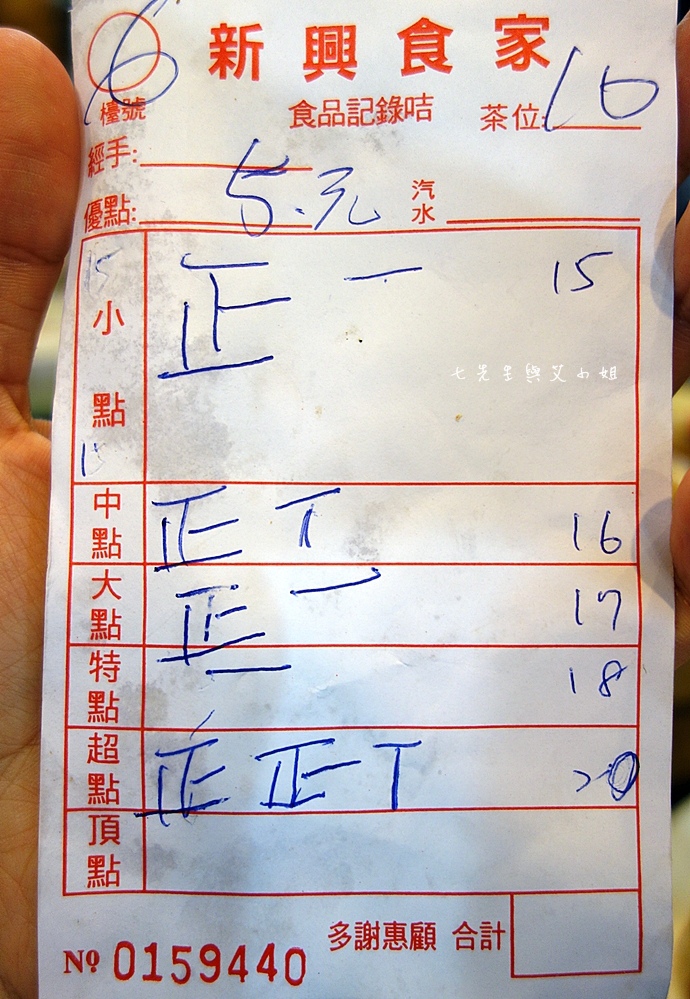 新興食家
6 檯號 食品記錄咭 茶位: 10
經手:
優點: 5.元 汽水
15 小點 15 正 一 15
七先生與艾小姐
中點 正 丅 16
大點 正 一 17
特點 一 18
超點 正 正 丅 20
頂點
多謝惠顧 合計
Nº 0159440